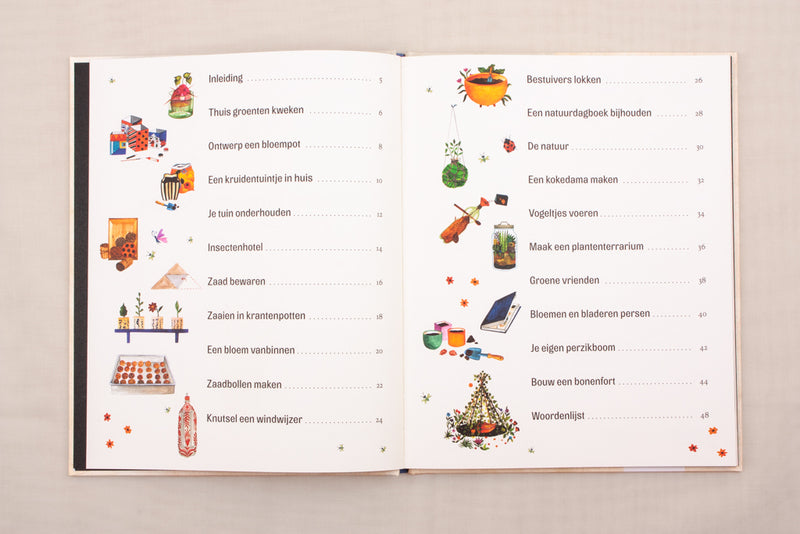 Inleiding 5
Thuis groenten kweken 6
Ontwerp een bloempot 8
Een kruidentuintje in huis 10
Je tuin onderhouden 12
Insectenhotel 14
Zaad bewaren 16
Zaaien in krantenpotten 18
Een bloem vanbinnen 20
Zaadbollen maken 22
Knutsel een windwijzer 24
Bestuivers lokken 26
Een natuurdagboek bijhouden 28
De natuur 30
Een kokedama maken 32
Vogeltjes voeren 34
Maak een plantenterrarium 36
Groene vrienden 38
Bloemen en bladeren persen 40
Je eigen perzikboom 42
Bouw een bonenfort 44
Woordenlijst 48